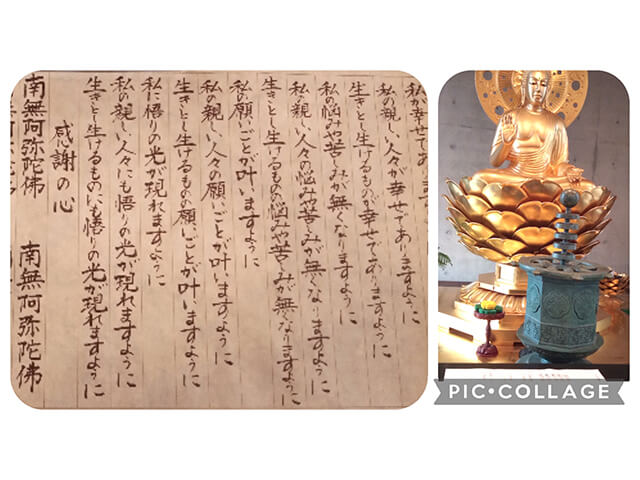 私が幸せでありますように
私の親しい人々が幸せでありますように
生きとし生けるものが幸せでありますように
私の悩みや苦しみが無くなりますように
私の親しい人々の悩みや苦しみが無くなりますように
生きとし生けるものの悩みや苦しみが無くなりますように
私の願いごとが叶いますように
私の親しい人々の願いごとが叶いますように
生きとし生けるものの願いごとが叶いますように
私に悟りの光が現れますように
私の親しい人々にも悟りの光が現れますように
生きとし生けるものにも悟りの光が現れますように
感謝の心
南無阿弥陀佛 南無阿弥陀佛
PIC•COLLAGE